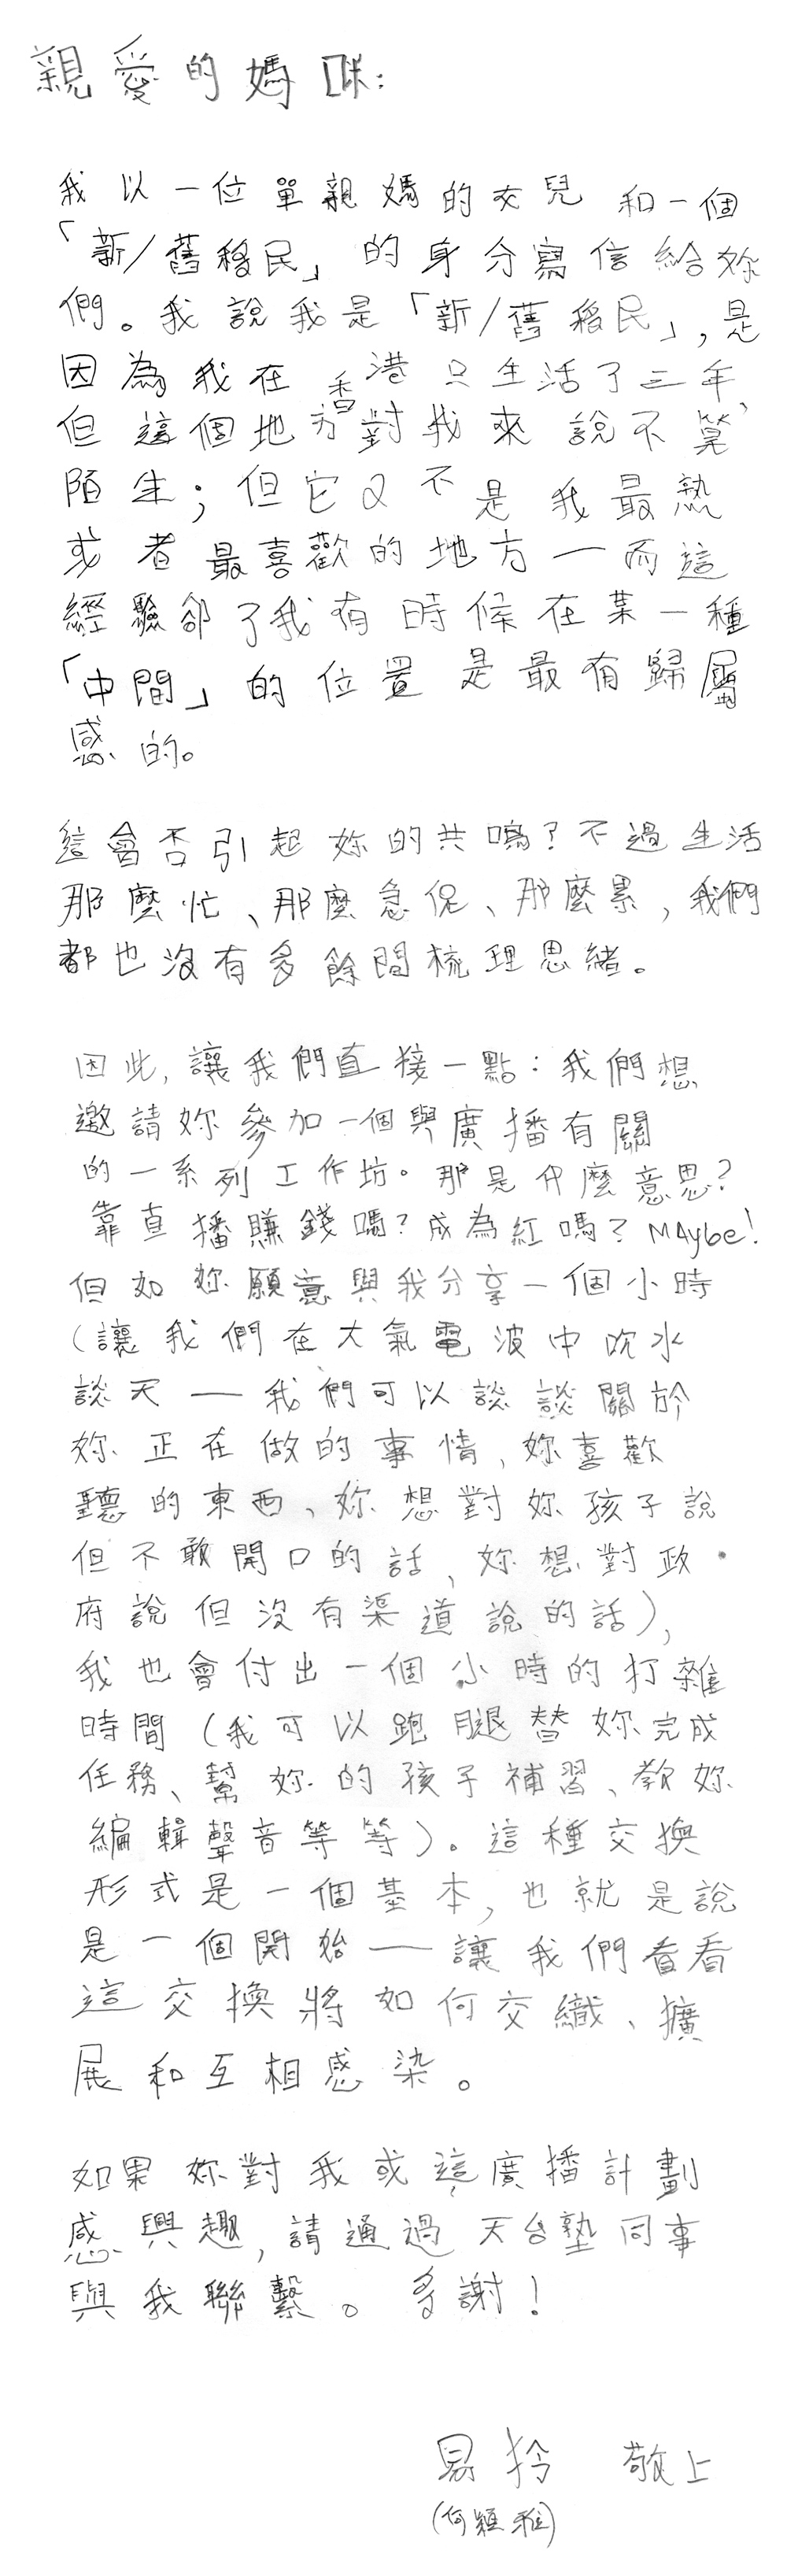 親愛的媽咪：
我以一位單親媽的女兒和一個
「新/舊移民」的身分寫信給妳
們。我說我是「新/舊移民」，是
因為我在香港只生活了三年，
但這個地方對我來說不算
陌生；但它又不是我最熟
或者最喜歡的地方—而這
經驗卻了我有時候在某一種
「中間」的位置是最有歸屬
感的。
這會否引起妳的共鳴？不過生活
那麼忙、那麼急促、那麼累，我們
都也沒有多餘間梳理思緒。
因此，讓我們直接一點：我們想
邀請妳參加一個與廣播有關
的一系列工作坊。那是什麼意思？
靠直播賺錢嗎？成為紅嗎？MAybe!
但如妳願意與我分享一個小時
（讓我們在大氣電波中吹水
談天—我們可以談談關於
妳正在做的事情，妳喜歡
聽的東西、妳想對妳孩子說
但不敢開口的話，妳想對政
府說但沒有渠道說的話），
我也會付出一個小時的打雜
時間（我可以跑腿替妳完成
任務、幫妳的孩子補習、教妳
編輯聲音等等）。這種交換
形式是一個基本，也就是說
是一個開始—讓我們看看
這交換將如何交織、擴
展和互相感染。
如果妳對我或這廣播計劃
感興趣，請通過天台塾同事
與我聯繫。多謝！
易拎 敬上
（何穎雅）